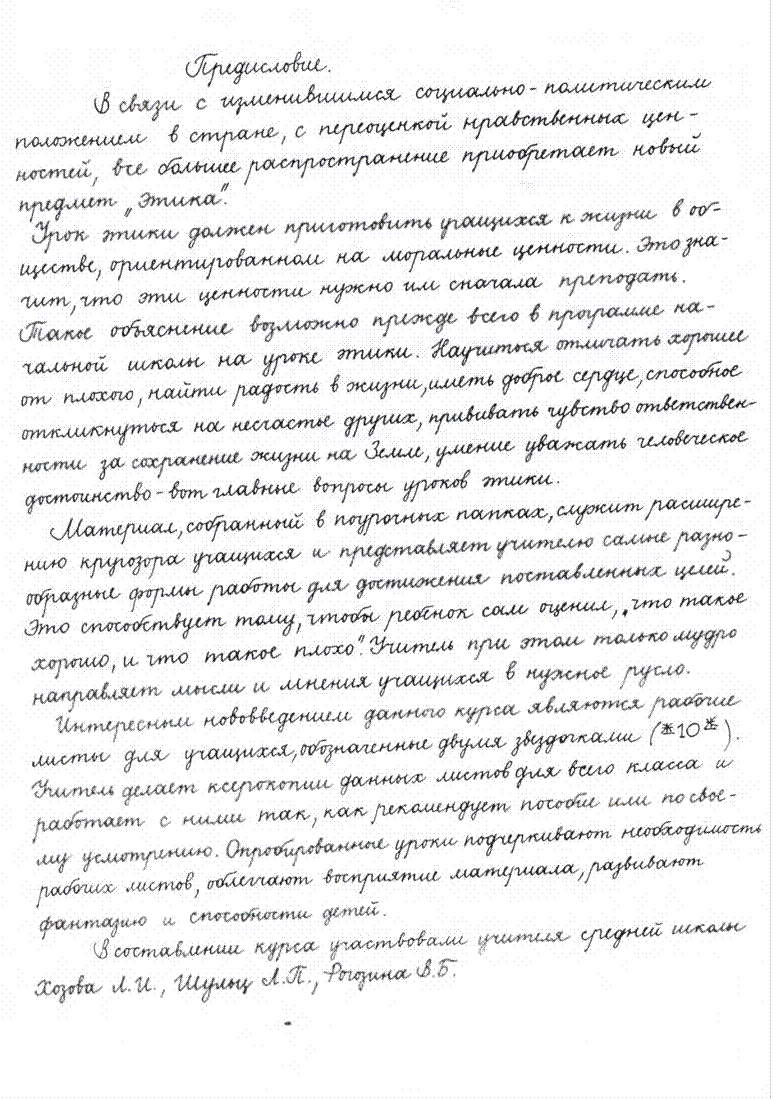 Предисловие.
В связи с изменившимся социально-политическим
положением в стране, с переоценкой нравственных цен-
ностей, все большее распространение приобретает новый
предмет „Этика".
Урок этики должен приготовить учащихся к жизни в об-
ществе, ориентированном на моральные ценности. Это зна-
чит, что эти ценности нужно им сначала преподать.
Такое объяснение возможно прежде всего в программе на-
чальной школы на уроке этики. Научиться отличать хорошее
от плохого, найти радость в жизни, иметь доброе сердце, способное
откликнуться на несчастье других, прививать чувство ответствен-
ности за сохранение жизни на Земле, умение уважать человеческое
достоинство - вот главные вопросы уроков этики.
Материал, собранный в поурочных папках, служит расшире-
нию кругозора учащихся и представляет учителю самые разно-
образные формы работы для достижения поставленных целей.
Это способствует тому, чтобы ребёнок сам оценил, „что такое
хорошо, и что такое плохо". Учитель при этом только мудро
направляет мысли и мнения учащихся в нужное русло.
Интересным нововведением данного курса являются рабочие
листы для учащихся, обозначенные двумя звездочками (*10*).
Учитель делает ксерокопии данных листов для всего класса и
работает с ними так, как рекомендует пособие или по свое-
му усмотрению. Опробированные уроки подчеркивают необходимость
рабочих листов, облегчают восприятие материала, развивают
фантазию и способности детей.
В составлении курса участвовали учителя средней школы
Хозова Л.И., Шульц Л.П., Рогозина В.Б.